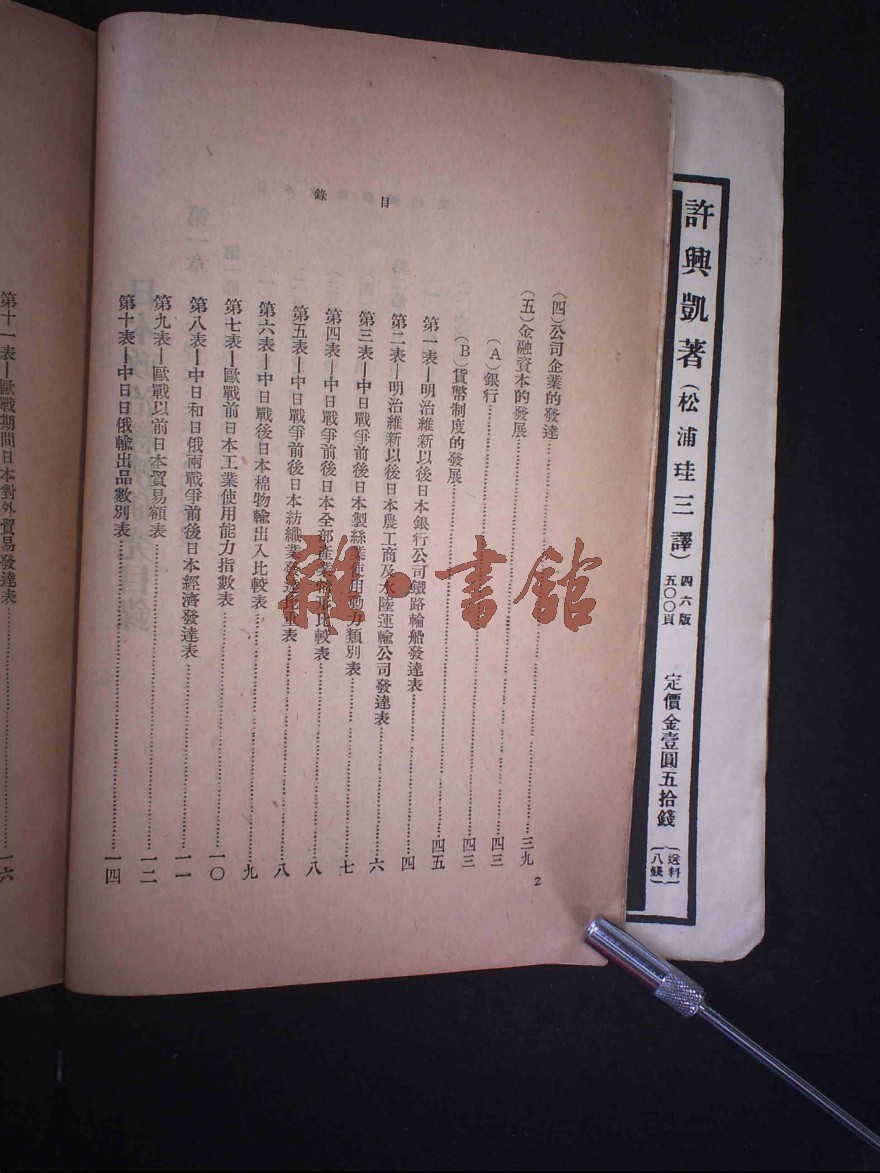 許興凱著(松浦珪三譯)
四六版
五〇〇頁
定價金壹圓五拾錢
(送料八錢)
目錄
(四)公司企業的發達……三九
(五)金融資本的發展……四三
(A)銀行……四三
(B)貨幣制度的發展……四五
第一表—明治維新以後日本銀行公司鐵路輪船發達表……四
第二表—明治維新以後日本農工商及水陸運輸公司發達表……六
第三表—中日戰爭前後日本製絲業使用動力類別表……七
第四表—中日戰爭前後日本全部產業形比較表……八
第五表—中日戰爭前後日本紡織業發達比重表……八
第六表—中日戰後日本棉物輸出入比較表……九
第七表—歐戰前日本工業使用能力指數表……一〇
第八表—中日和日俄兩戰爭前後日本經濟發達表……一一
第九表—歐戰以前日本貿易額表……一二
第十表—中日日俄輸出品數別表……一四
2
第十一表—歐戰期間日本對外貿易發達表……一六
雜·書館